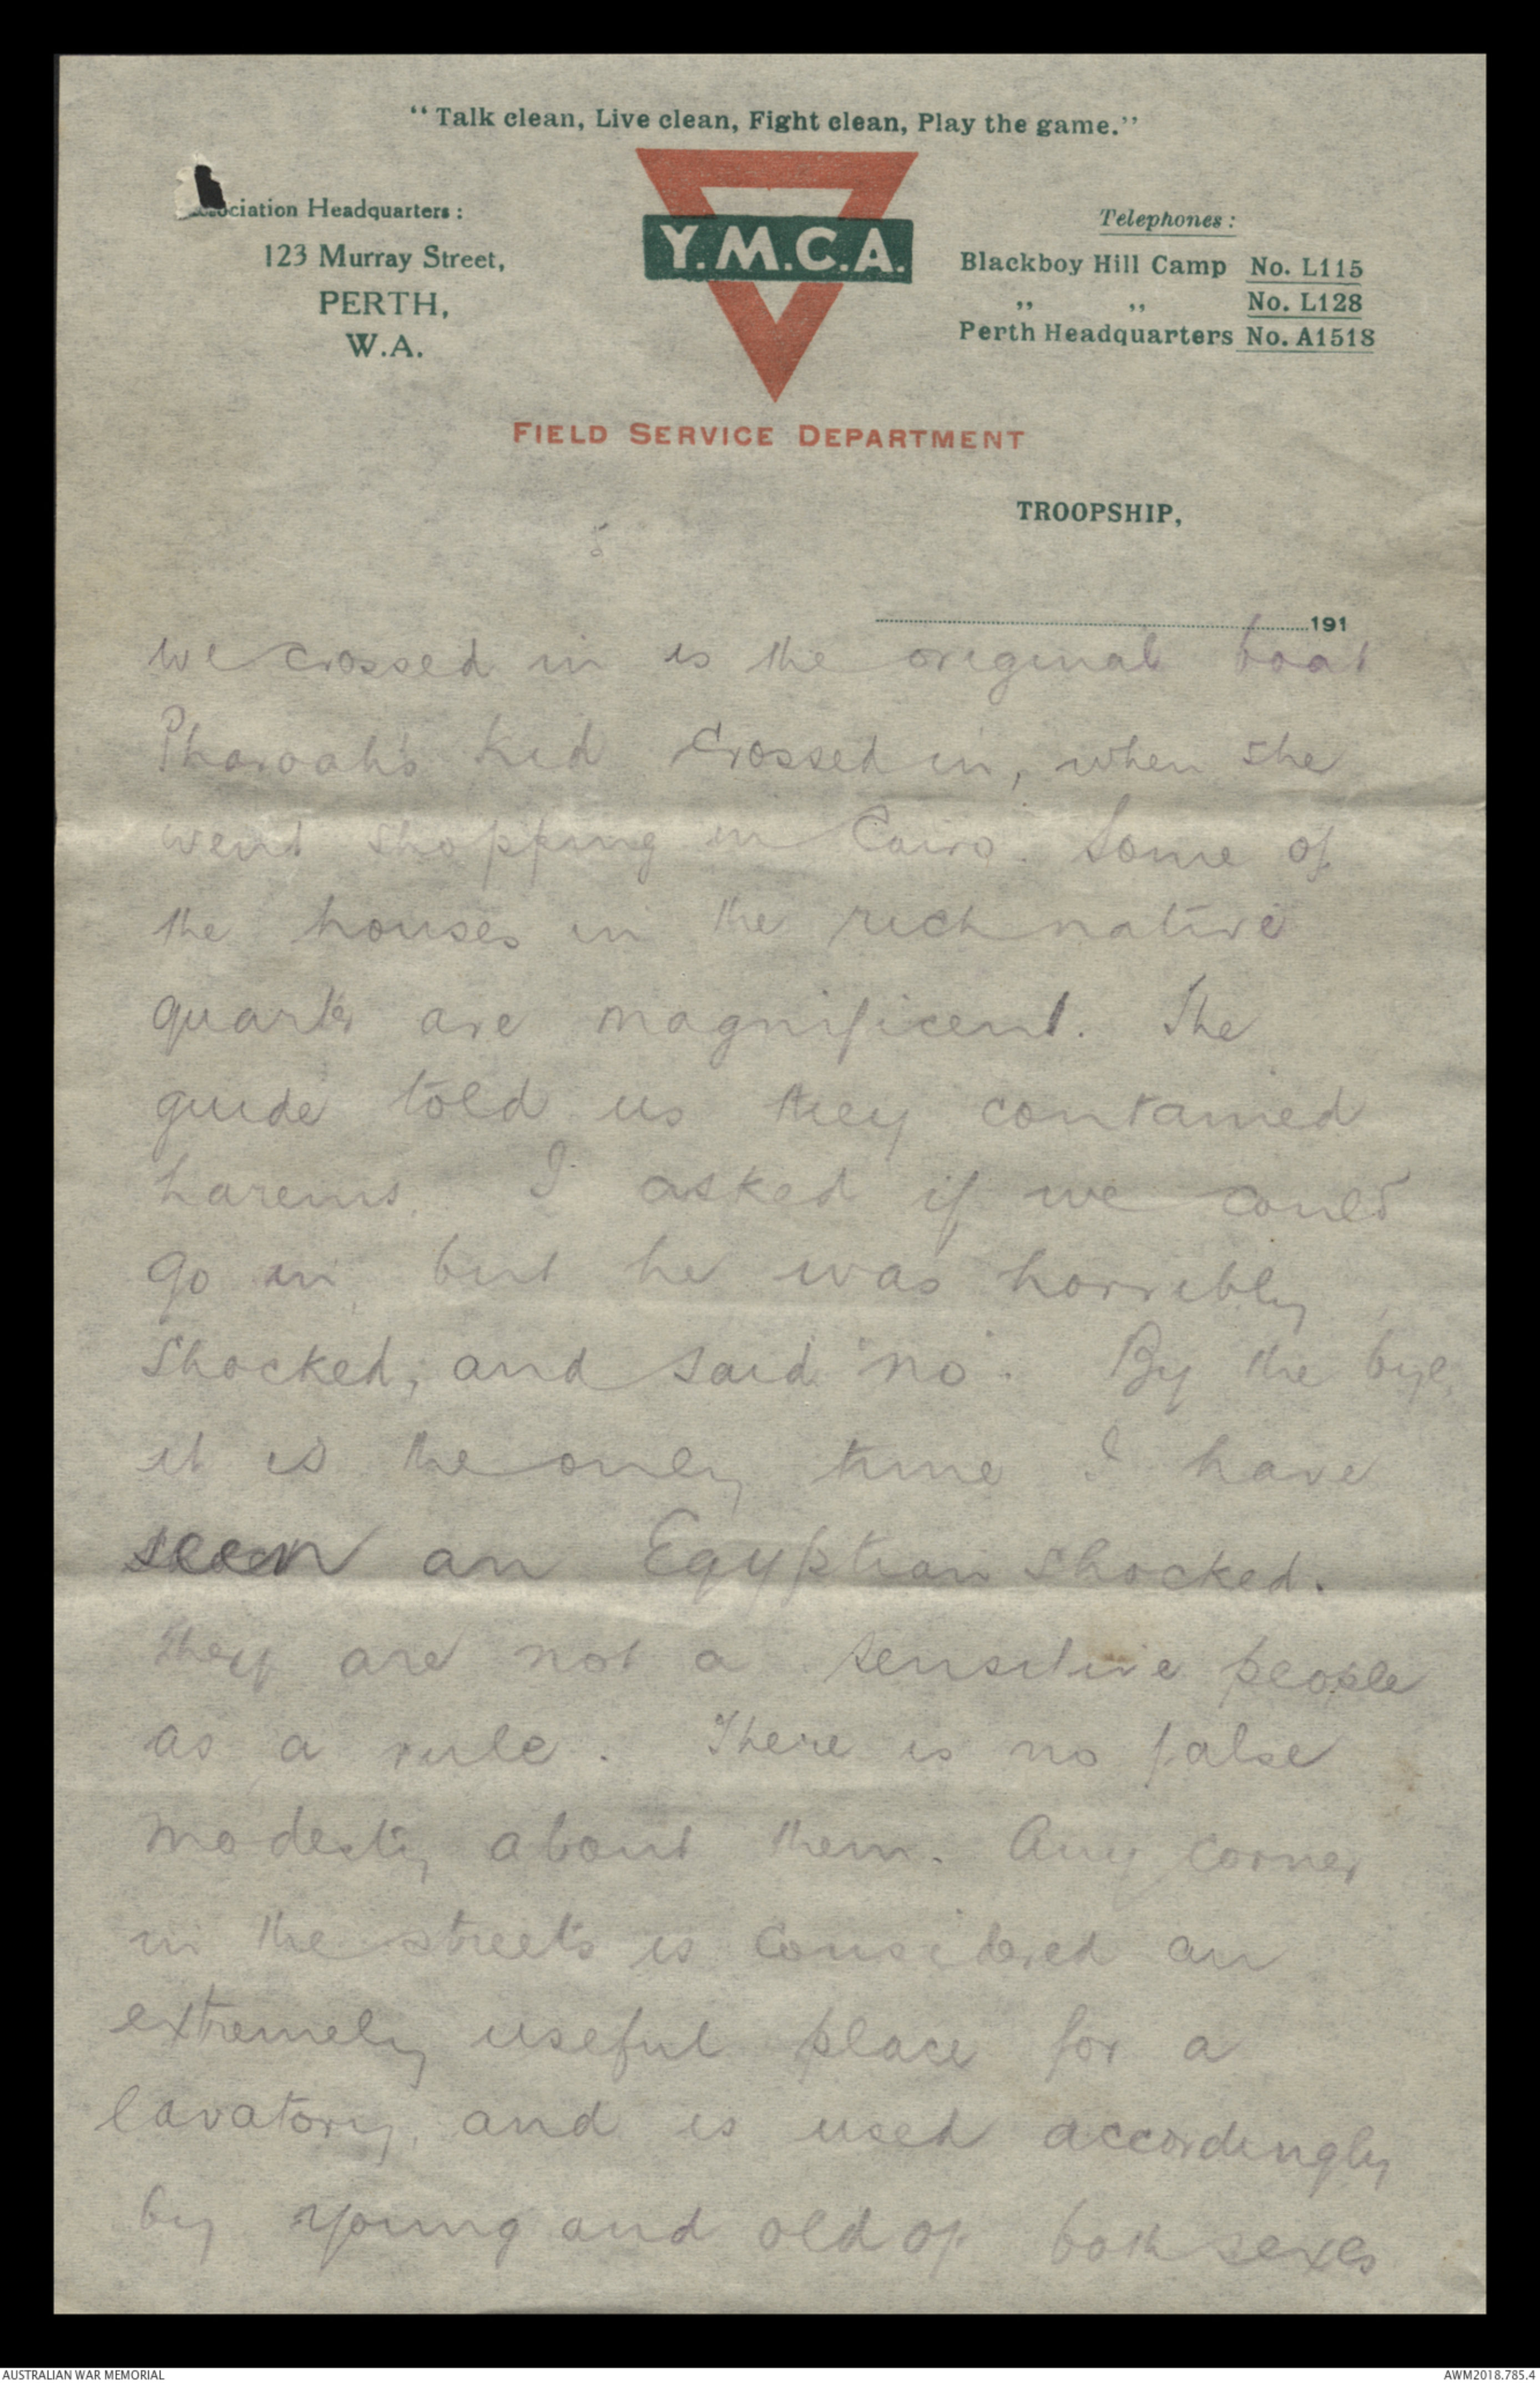 "Talk clean, Live clean, Fight clean, Play the game."
ciation Headquarters :
123 Murray Street,
PERTH,
W.A.
Y.M.C.A.
Telephones :
Blackboy Hill Camp No. L115
" " No. L128
Perth Headquarters No. A1518
FIELD SERVICE DEPARTMENT
TROOPSHIP,
191
we crossed in is the original boat
Pharoah's kid crossed in, when she
went shopping in Cairo. Some of
the houses in the rich native
quarter are magnificent. The
guide told us they contained
harems. I asked if we could
go in, but he was horribly
shocked, and said "no". By the bye,
it is the only time I have
seen an Egyptian shocked.
They are not a sensitive people
as a rule. There is no false
modesty about them. Any corner
in the streets is considered an
extremely useful place for a
lavatory, and is used accordingly
by young and old of both sexes
AUSTRALIAN WAR MEMORIAL
AWM2018.785.4